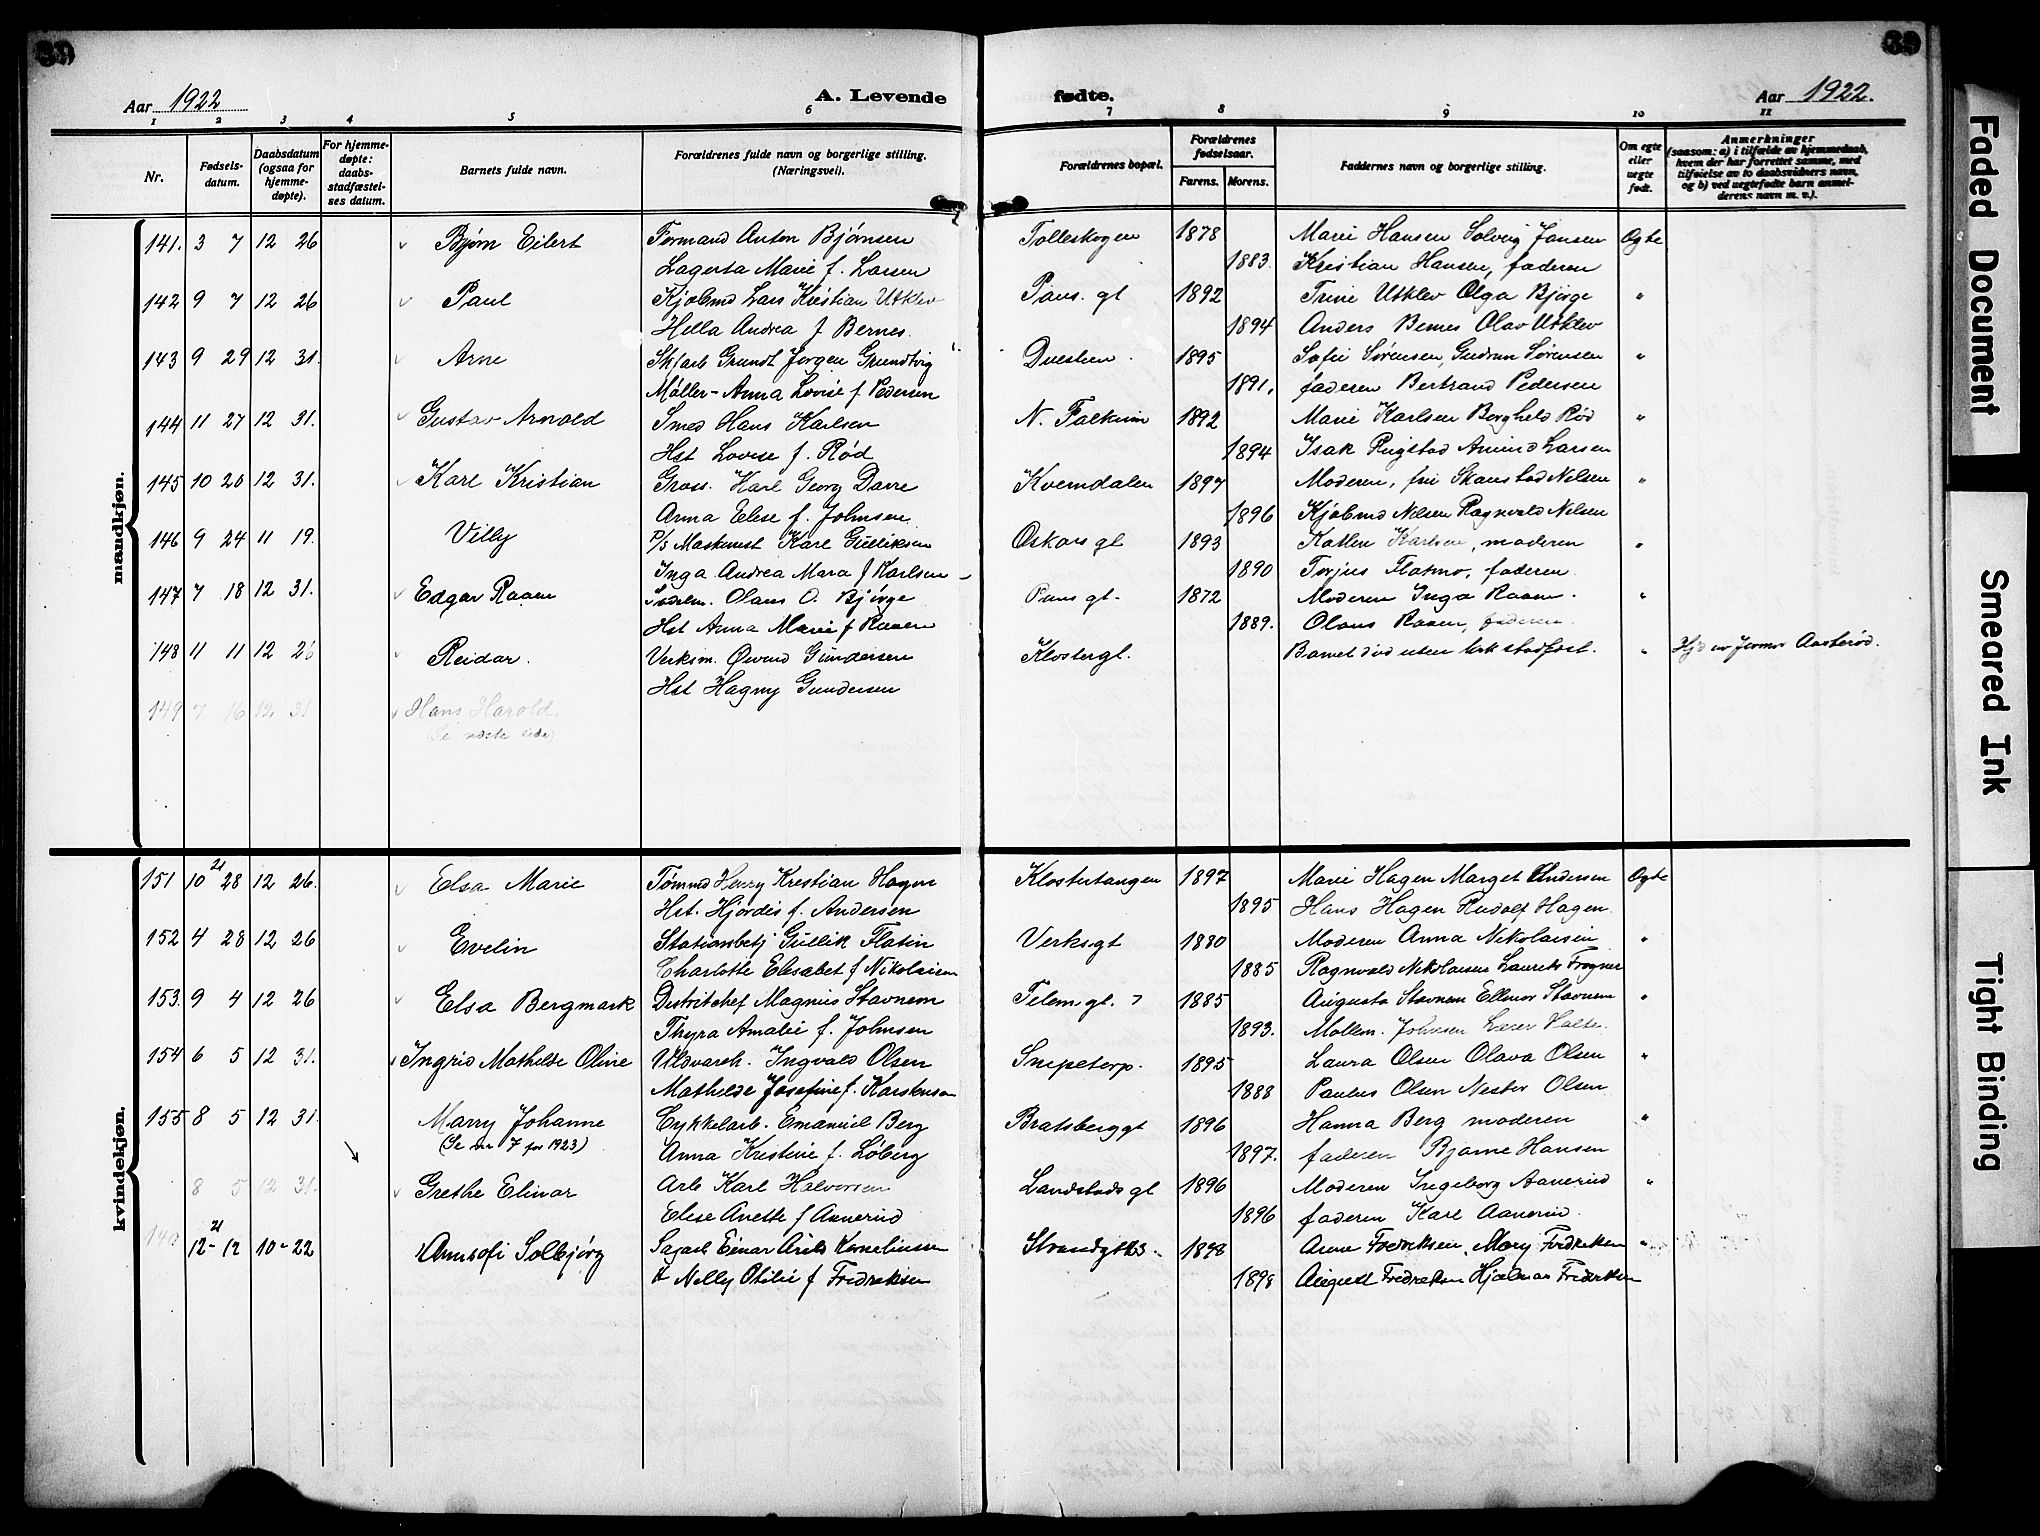 39
39
Aar 1922
A. Levende
fødte.
Aar 1922.
1 2 3 4 5 6 7 8 9 10 11
Nr.
Fødsels-
datum.
Daabsdatum
(ogsaa for
hjemme-
døpte).
For hjemme-
døpte:
daabs-
stadfæstel-
ses datum.
Barnets fulde navn.
Forældrenes fulde navn og borgerlige stilling.
(Næringsvei).
Forældrenes bopæl.
Forældrenes
fødselsaar.
Farens. Morens.
Faddernes navn og borgerlige stilling.
Om egte
eller
uegte
født.
Anmerkninger
(saasom: a) i tilfælde av hjemmedaab,
hvem der har forrettet samme, med
tilføielse av to daabsvidners navn,
og b) ved uegtefødte barn anmel-
derens navn m. v.).
mandkjøn.
141. 3 7 12 26 Bjørn Eilert Formand Anton Bjørnsen Tolleskogen 1878 Marie Hansen Solveig Jansen Egte
Lagerta Marie f. Larsen 1883. Kristian Hansen, faderen
142 9 7 12 26 Paul Kjøbmd Lars Kristian Utklev Paus. gt 1892 Trine Utklev Olga Bjørge "
Hella Andrea f Bernes. 1894 Anders Bernes Olav Utklev
143 9 29 12 31. Arne Grundt Jørgen Grundtvig Duestien 1895 Sofie Sørensen, Gudrun Sørensen "
Møller - Anna Lovise f Pedersen 1891. faderen Bertrand Pedersen
144 11 27 12 31. Gustav Arnold Smed Hans Karlsen N. Falkum 1892 Marie Karlsen Borghild Rød "
Hst Lovise f. Rød 1894 Isak Rugstad Amund Larsen
145 10 20 12 31. Karl Kristian Gross. Karl Georg Davre Kverndalen 1897 Moderen, fru Skanstad Nilsen "
Anna Elise f. Johnsen. 1896 Kjøbmd Nilsen Ragnvald Nilsen
146 9 24 11 19. Villy Maskinist Karl Gulliksen Oskars gt 1893 Katlen Karlsen, moderen "
Inga Andrea Mara f Karlsen 1890 Torjus Flatmo, faderen
147 7 18 12 31. Edgar Raaen Olaus O. Bjørge Paus gt. 1872 Moderen Inga Raaen. "
Hst Anna Marie f Raaen 1889. Olaus Raaen, faderen.
148 11 11 12 26 Reidar. Verksm. Øivind Gundersen Klostergt. Barnet død uten kirk stadfæst. " Hjd av Jormor Aasterød.
Hst Hagny Gundersen
149 7 16 12 31 Hans Harold.
(Se næste side)
kvindekjøn.
151 10 21 28 12 26. Elsa Marie Tømmd Henry Kristian Hagen Klostertangen 1897 Marie Hagen Marget Andersen Egte
Hst. Hjørdis f. Andersen 1895 Hans Hagen Rudolf Hagen.
152 4 28 12 26 Evelin Stationsbetj Gullik Flatin Verksgt 1880 Moderen Anna Nikolaisen "
Charlotte Elisabet f Nikolaisen 1885 Ragnvald Nikolaisen Laurits Frogner
153. 9 4 12 26 Elsa Bergmark Distritchef Magnus Stavnem Telem gt. 7 1885 Augusta Stavnem Ellinor Stavnem "
Thyra Amalie f. Johnsen 1893. Møllem. Johnsen Lærer Valte.
154 6 5 12 31. Ingrid Mathilde Oline Ingvald Olsen Snipetorp. 1895 Laura Olsen Olava Olsen "
Mathilde Josefine f. Karstensen 1888 Paulus Olsen Nestor Olsen
155 8 5 12 31. Marry Johanne Cykkelarb. Emanuel Berg Bratsberggt 1896 Hanna Berg moderen "
(Se nr 7 for 1923) Anna Kristine f. Løberg 1897. faderen Bjarne Hansen
8 5 12 31. Grethe Elinor Arb Karl Halvorsen Landstads gt 1896 Moderen Ingeborg Aanerud "
Elise Anette f Aanerud 1896 faderen Karl Aanerud.
140 12 21 12 10-22 Annsofi Solbjørg Sagarb Einar Arild Kornelinssen Strandgt 1898 Anne Fredriksen, Mary Fredriksen "
Nelly Otilie f Fredriksen 1898 August Fredriksen Hjalmar Fredriksen
Faded Document
Smeared Ink
Tight Binding